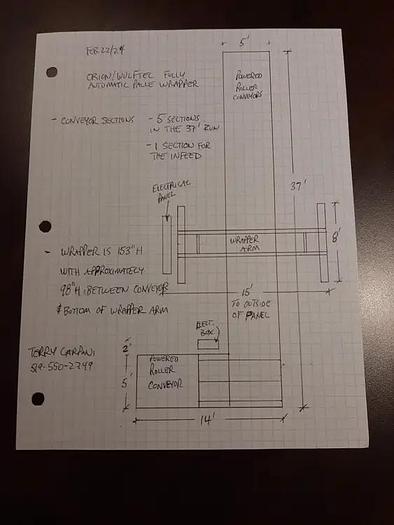 FEB 22/24
ORION/WULFTEC FULLY
AUTOMATIC PALLE WRAPPER
- CONVEYOR SECTIONS
- 5 SECTIONS
IN THE 37' RUN
- 1 SECTION FOR
THE INFEED
5'
POWERED
ROLLER
CONVEYORS
37'
ELECTRICAL
PANEL
WRAPPER
ARM
8'
15'
TO OUTSIDE
OF PANEL
- WRAPPER IS 153"H
WITH APPROXIMATELY
98"H BETWEEN CONVEYOR
& BOTTOM OF WRAPPER ARM
ELECT.
BOX
TERRY
519-550-2249
2'
5'
POWERED
ROLLER
CONVEYOR
14'